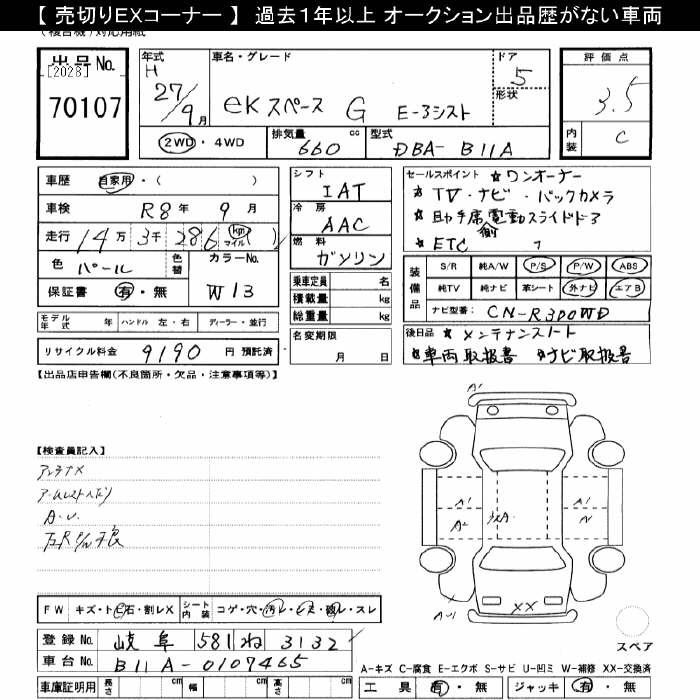 【 売切りEXコーナー 】 過去１年以上 オークション出品歴がない車両
出品No.
[2028]
70107
年式
H
27/9月
車名・グレード
eKスペース G E-アシスト
ドア
5
形状
評価点
3.5
内装
C
2WD・4WD
排気量
660 cc
型式
DBA- B11A
車歴 自家用・( )
車検 R8年 9月
走行 14万 3千 286 km マイル ( )
色 パール
色替
カラーNo.
W13
保証書 有・無
シフト
IAT
冷房
AAC
燃料
ガソリン
乗車定員 名
積載量 kg
総重量 kg
名変期限
月 日
セールスポイント ☆ワンオーナー
★TV・ナビ・バックカメラ
★助手席側電動スライドドア
★ETC
装備品
S/R 純A/W P/S P/W ABS
純TV 純ナビ 革シート 外ナビ エアB
ナビ型番 CN-R300WD
後日品 ★メンテナンスノート
★車両取扱書 ★ナビ取扱書
モデル年式 年 ハンドル 左・右 ディーラー・並行
リサイクル料金 9190 円 預託済
【出品店申告欄(不良箇所・欠品・注意事項等)】
【検査員記入】
アンテナX
A・U.
左R P/W不良
A1
A1
A2
XA
A1
W
A・U1
XX
FW キズ・ト石・割レX シート内装 コゲ・穴・汚レ・・破レ・スレ
登録No. 岐阜 581 ね 3132
車台No. B11A-0107465
スペア
A-キズ C-腐食 E-エクボ S-サビ U-凹ミ W-補修 XX-交換済
車庫証明用 長さ cm 幅 cm 高さ cm 工具 有・無 ジャッキ 有・無